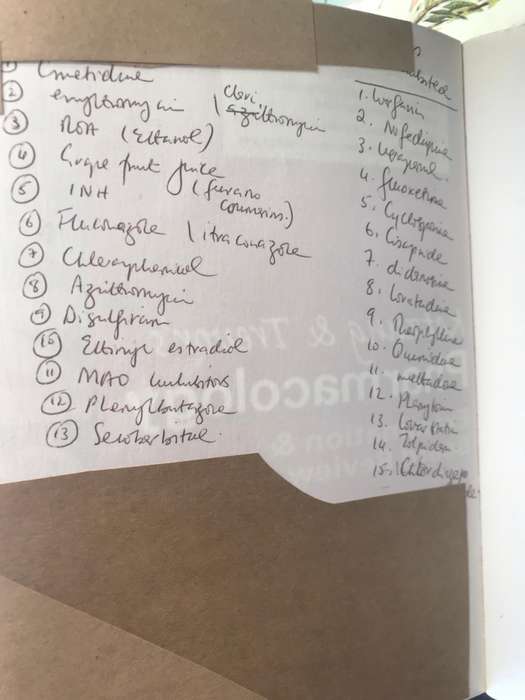 ① Cimetidine
② erythromycin / Clari, azithromycin
③ ROA (Ethanol)
④ Grape fruit juice
⑤ INH (furano coumarins.)
⑥ Fluconazole / itraconazole
⑦ Chloramphenicol
⑧ Azithromycin
⑨ Disulfiram
⑩ Ethinyl estradiol
⑪ MAO inhibitors
⑫ Phenylbutazone
⑬ Secobarbital.
1. Warfarin
2. Nifedipine
3. Verapamil
4. fluoxetine
5. Cyclosporine
6. Cisapride
7. didanosine
8. Loratadine
9. Theophylline
10. Quinidine
11. methadone
12. Phenytoin
13. Lovastatin
14. Zolpidem
15. Chlordiazepo
Pharmacology